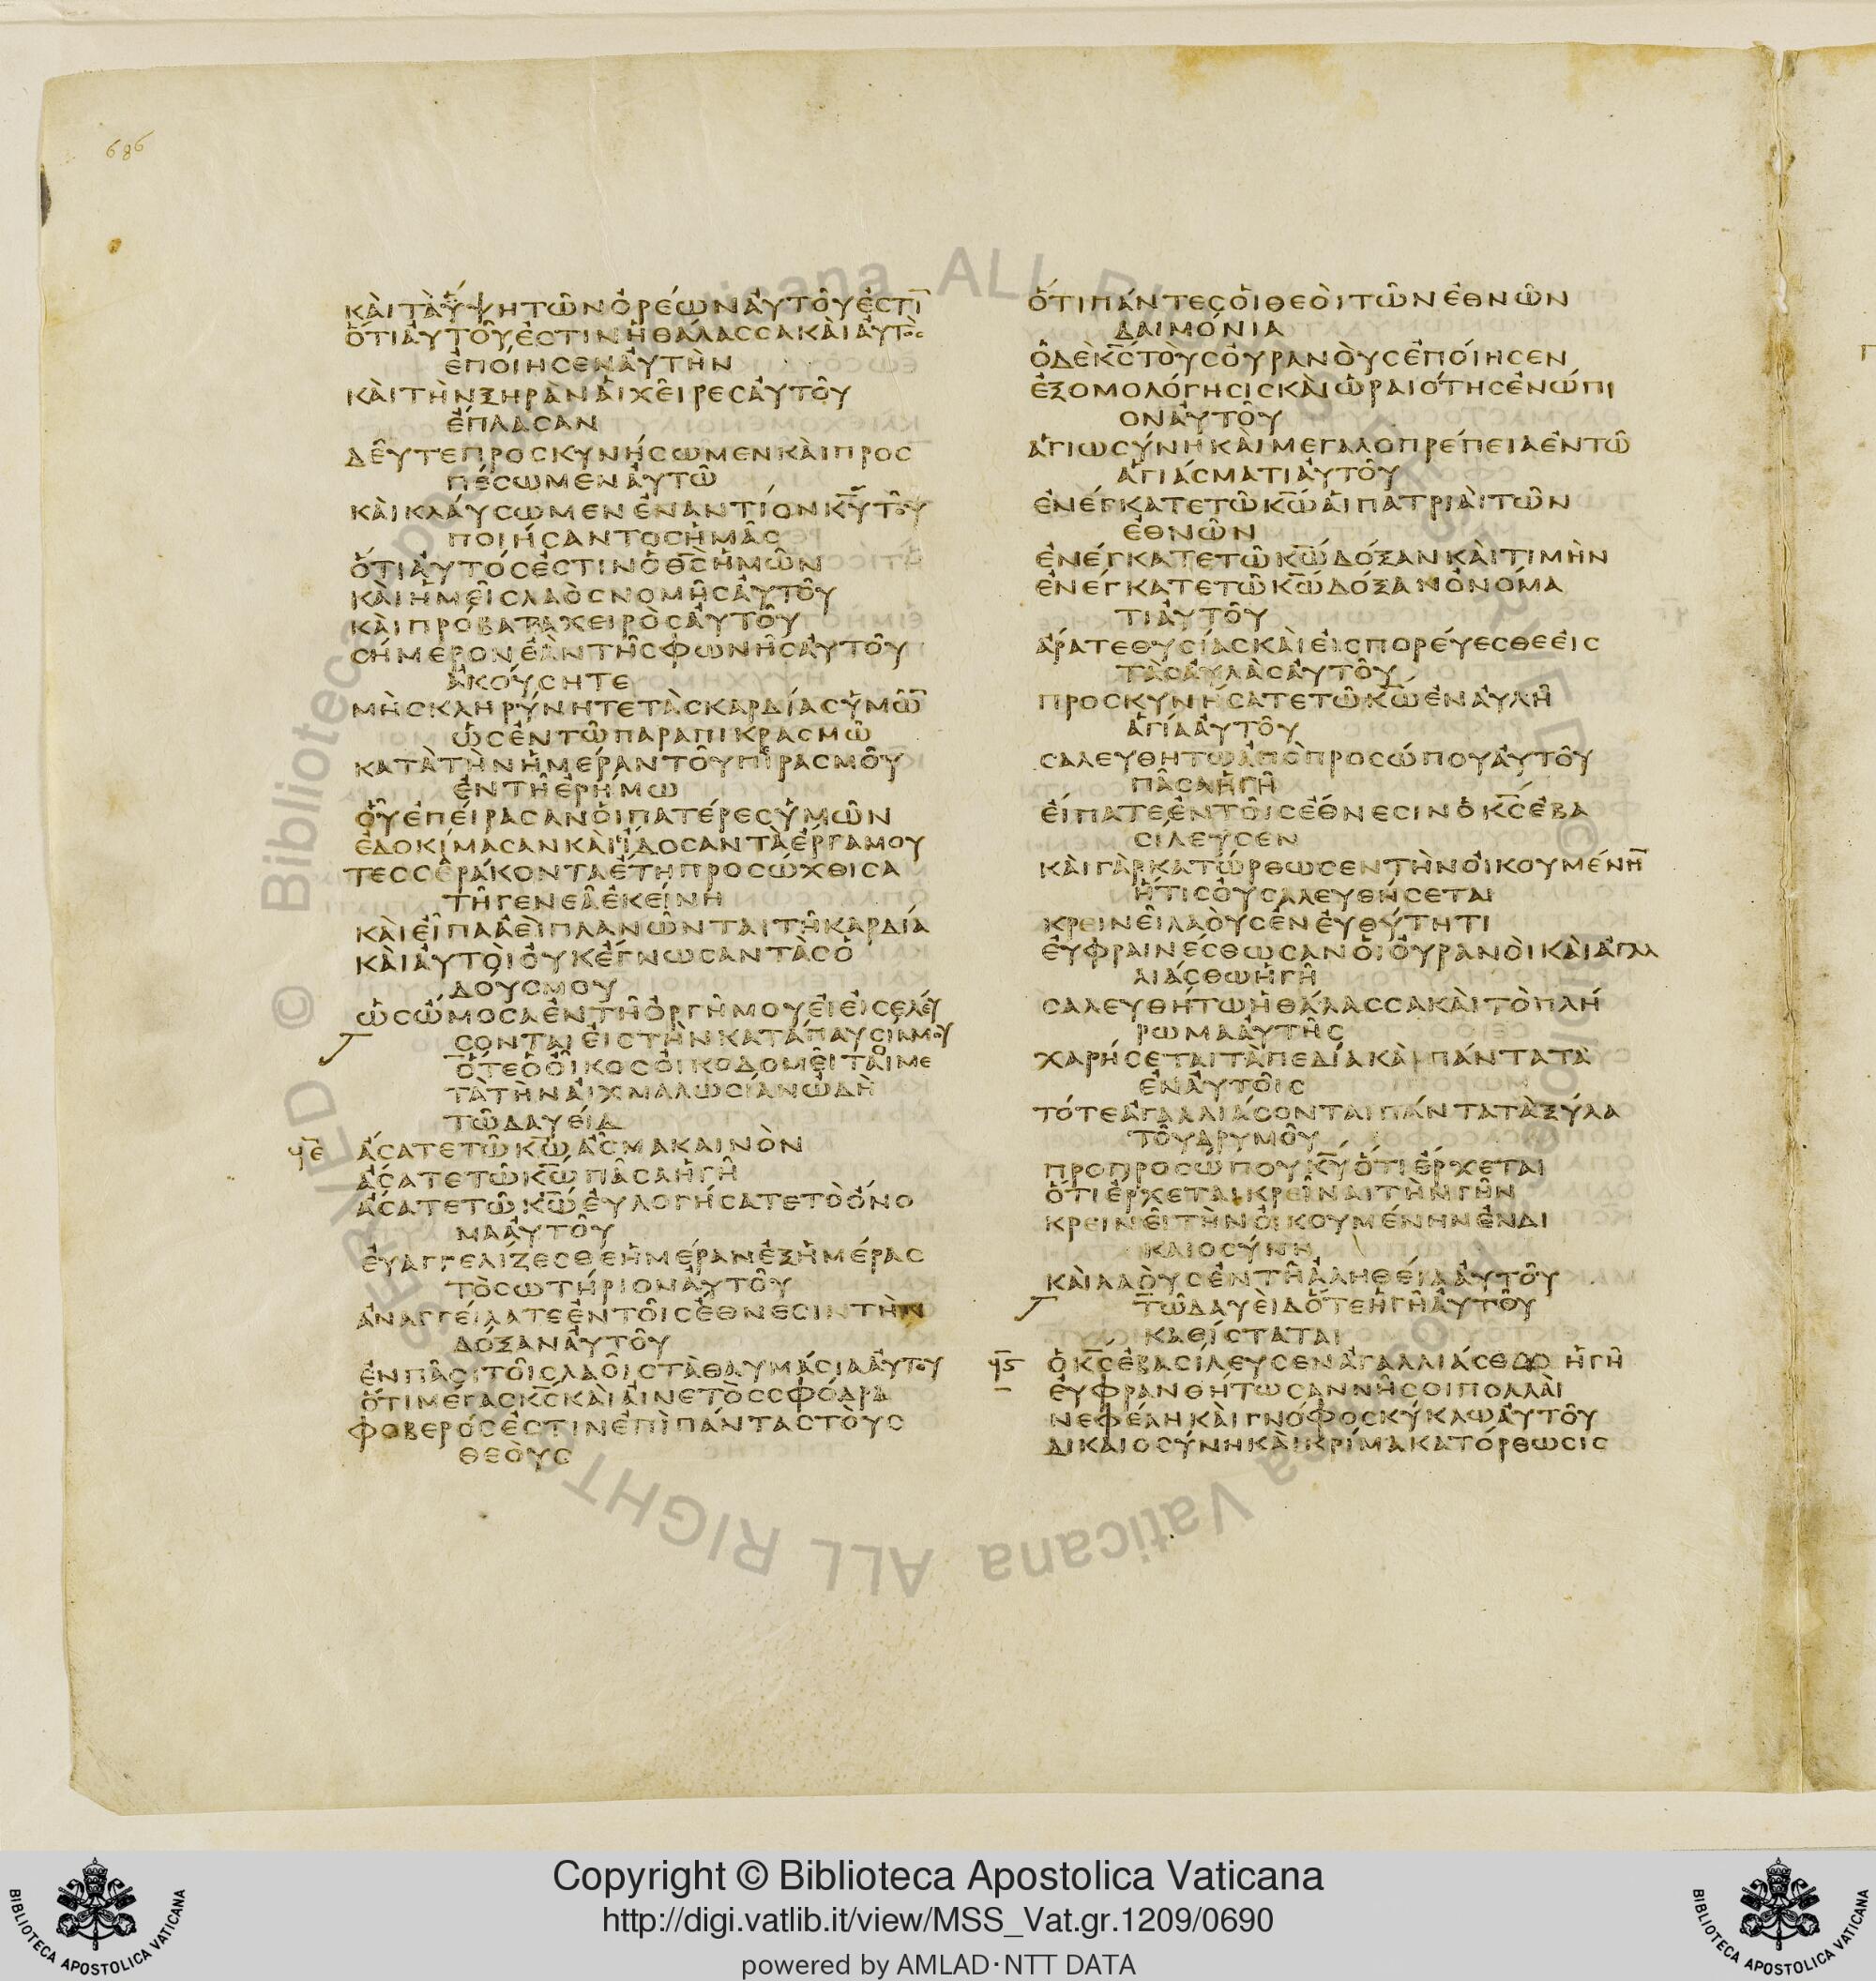 686
ΚΑΙΤΑΥΨΗΤΩΝΟΡΕΩΝΑΥΤΟΥΕΣΤΙ̅
ΟΤΙΑΥΤΟΥΕΣΤΙΝΗΘΑΛΑΣΣΑΚΑΙΑΥΤΟΣ
ΕΠΟΙΗΣΕΝΑΥΤΗΝ
ΚΑΙΤΗΝΞΗΡΑΝΑΙΧΕΙΡΕΣΑΥΤΟΥ
ΕΠΛΑΣΑΝ
ΔΕΥΤΕΠΡΟΣΚΥΝΗΣΩΜΕΝΚΑΙΠΡΟΣ
ΠΕΣΩΜΕΝΑΥΤΩ
ΚΑΙΚΛΑΥΣΩΜΕΝΕΝΑΝΤΙΟΝΚ̅Υ̅ΤΟΥ
ΠΟΙΗΣΑΝΤΟΣΗΜΑΣ
ΟΤΙΑΥΤΟΣΕΣΤΙΝΟΘ̅Σ̅ΗΜΩΝ
ΚΑΙΗΜΕΙΣΛΑΟΣΝΟΜΗΣΑΥΤΟΥ
ΚΑΙΠΡΟΒΑΤΑΧΕΙΡΟΣΑΥΤΟΥ
ΣΗΜΕΡΟΝΕΑΝΤΗΣΦΩΝΗΣΑΥΤΟΥ
ΑΚΟΥΣΗΤΕ
ΜΗΣΚΛΗΡΥΝΗΤΕΤΑΣΚΑΡΔΙΑΣΥΜΩ̅
ΩΣΕΝΤΩΠΑΡΑΠΙΚΡΑΣΜΩ
ΚΑΤΑΤΗΝΗΜΕΡΑΝΤΟΥΠΙΡΑΣΜΟΥ
ΕΝΤΗΕΡΗΜΩ
ΟΥΕΠΕΙΡΑΣΑΝΟΙΠΑΤΕΡΕΣΥΜΩΝ
ΕΔΟΚΙΜΑΣΑΝΚΑΙΙΔΟΣΑΝΤΑΕΡΓΑΜΟΥ
ΤΕΣΣΕΡΑΚΟΝΤΑΕΤΗΠΡΟΣΩΧΘΙΣΑ
ΤΗΓΕΝΕΑΕΚΕΙΝΗ
ΚΑΙΕΙΠΑΑΕΙΠΛΑΝΩΝΤΑΙΤΗΚΑΡΔΙΑ
ΚΑΙΑΥΤΟΙΟΥΚΕΓΝΩΣΑΝΤΑΣΟ
ΔΟΥΣΜΟΥ
ΩΣΩΜΟΣΑΕΝΤΗΟΡΓΗΜΟΥΕΙΕΙΣΕΛΕΥ
ΣΟΝΤΑΙΕΙΣΤΗΝΚΑΤΑΠΑΥΣΙΜΜΟΥ
ΟΤΕΟΟΙΚΟΣΟΙΚΟΔΟΜΕΙΤΑΙΜΕ
ΤΑΤΗΝΑΙΧΜΑΛΩΣΙΑΝΩΔΗ
ΤΩΔΑΥΕΙΔ
ϟ̅Ε̅ ΑΣΑΤΕΤΩΚ̅Ω̅ΑΣΜΑΚΑΙΝΟΝ
ΑΣΑΤΕΤΩΚ̅Ω̅ΠΑΣΑΗΓΗ
ΑΣΑΤΕΤΩΚ̅Ω̅ΕΥΛΟΓΗΣΑΤΕΤΟΟΝΟ
ΜΑΑΥΤΟΥ
ΕΥΑΓΓΕΛΙΖΕΣΘΕΗΜΕΡΑΝΕΞΗΜΕΡΑΣ
ΤΟΣΩΤΗΡΙΟΝΑΥΤΟΥ
ΑΝΑΓΓΕΙΛΑΤΕΕΝΤΟΙΣΕΘΝΕΣΙΝΤΗΝ
ΔΟΞΑΝΑΥΤΟΥ
ΕΝΠΑΣΙΤΟΙΣΛΑΟΙΣΤΑΘΑΥΜΑΣΙΑΑΥΤΟΥ
ΟΤΙΜΕΓΑΣΚ̅Σ̅ΚΑΙΑΙΝΕΤΟΣΣΦΟΔΡΑ
ΦΟΒΕΡΟΣΕΣΤΙΝΕΠΙΠΑΝΤΑΣΤΟΥΣ
ΘΕΟΥΣ
ΟΤΙΠΑΝΤΕΣΟΙΘΕΟΙΤΩΝΕΘΝΩΝ
ΔΑΙΜΟΝΙΑ
ΟΔΕΚ̅Σ̅ΤΟΥΣΟΥΡΑΝΟΥΣΕΠΟΙΗΣΕΝ
ΕΞΟΜΟΛΟΓΗΣΙΣΚΑΙΩΡΑΙΟΤΗΣΕΝΩΠΙ
ΟΝΑΥΤΟΥ
ΑΓΙΩΣΥΝΗΚΑΙΜΕΓΑΛΟΠΡΕΠΕΙΑΕΝΤΩ
ΑΓΙΑΣΜΑΤΙΑΥΤΟΥ
ΕΝΕΓΚΑΤΕΤΩΚ̅Ω̅ΑΙΠΑΤΡΙΑΙΤΩΝ
ΕΘΝΩΝ
ΕΝΕΓΚΑΤΕΤΩΚ̅Ω̅ΔΟΞΑΝΚΑΙΤΙΜΗΝ
ΕΝΕΓΚΑΤΕΤΩΚ̅Ω̅ΔΟΞΑΝΟΝΟΜΑ
ΤΙΑΥΤΟΥ
ΑΡΑΤΕΘΥΣΙΑΣΚΑΙΕΙΣΠΟΡΕΥΕΣΘΕΕΙΣ
ΤΑΣΑΥΛΑΣΑΥΤΟΥ
ΠΡΟΣΚΥΝΗΣΑΤΕΤΩΚ̅Ω̅ΕΝΑΥΛΗ
ΑΓΙΑΑΥΤΟΥ
ΣΑΛΕΥΘΗΤΩΑΠΟΠΡΟΣΩΠΟΥΑΥΤΟΥ
ΠΑΣΑΗΓΗ
ΕΙΠΑΤΕΕΝΤΟΙΣΕΘΝΕΣΙΝΟΚ̅Σ̅ΕΒΑ
ΣΙΛΕΥΣΕΝ
ΚΑΙΓΑΡΚΑΤΩΡΘΩΣΕΝΤΗΝΟΙΚΟΥΜΕΝΗ̅
ΗΤΙΣΟΥΣΑΛΕΥΘΗΣΕΤΑΙ
ΚΡΕΙΝΕΙΛΑΟΥΣΕΝΕΥΘΥΤΗΤΙ
ΕΥΦΡΑΙΝΕΣΘΩΣΑΝΟΙΟΥΡΑΝΟΙΚΑΙΑΓΑΛ
ΛΙΑΣΘΩΗΓΗ
ΣΑΛΕΥΘΗΤΩΗΘΑΛΑΣΣΑΚΑΙΤΟΠΛΗ
ΡΩΜΑΑΥΤΗΣ
ΧΑΡΗΣΕΤΑΙΤΑΠΕΔΙΑΚΑΙΠΑΝΤΑΤΑ
ΕΝΑΥΤΟΙΣ
ΤΟΤΕΑΓΑΛΛΙΑΣΟΝΤΑΙΠΑΝΤΑΤΑΞΥΛΑ
ΤΟΥΔΡΥΜΟΥ
ΠΡΟΠΡΟΣΩΠΟΥΚ̅Υ̅ΟΤΙΕΡΧΕΤΑΙ
ΟΤΙΕΡΧΕΤΑΙΚΡΕΙΝΑΙΤΗΝΓΗΝ
ΚΡΕΙΝΕΙΤΗΝΟΙΚΟΥΜΕΝΗΝΕΝΔΙ
ΚΑΙΟΣΥΝΗ
ΚΑΙΛΑΟΥΣΕΝΤΗΑΛΗΘΕΙΑΑΥΤΟΥ
ΤΩΔΑΥΕΙΔΟΤΕΗΓΗΑΥΤΟΥ
ΚΑΘΙΣΤΑΤΑΙ
ϟ̅Ϛ̅ ΟΚ̅Σ̅ΕΒΑΣΙΛΕΥΣΕΝΑΓΑΛΛΙΑΣΘΩ ΗΓΗ
ΕΥΦΡΑΝΘΗΤΩΣΑΝΝΗΣΟΙΠΟΛΛΑΙ
ΝΕΦΕΛΗΚΑΙΓΝΟΦΟΣΚΥΚΛΩΑΥΤΟΥ
ΔΙΚΑΙΟΣΥΝΗΚΑΙΚΡΙΜΑΚΑΤΟΡΘΩΣΙΣ
Copyright © Biblioteca Apostolica Vaticana
http://digi.vatlib.it/view/MSS_Vat.gr.1209/0690
powered by AMLAD·NTT DATA
BIBLIOTECA APOSTOLICA VATICANA
BIBLIOTECA APOSTOLICA VATICANA